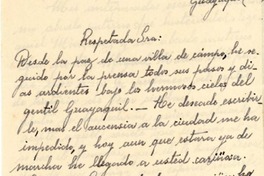 Guayaquil
Respetada Sra:
Desde la paz de una villa de campo, he se-
guido por la prensa todos sus pasos y di-
as ardientes bajo los hermosos cielos del
gentil Guayaquil. — He deseado escribir
le, mas el ausencia a la ciudad me ha
impedido, y hoy aun que estará ya de
marcha he llegado a usted cariñosa.